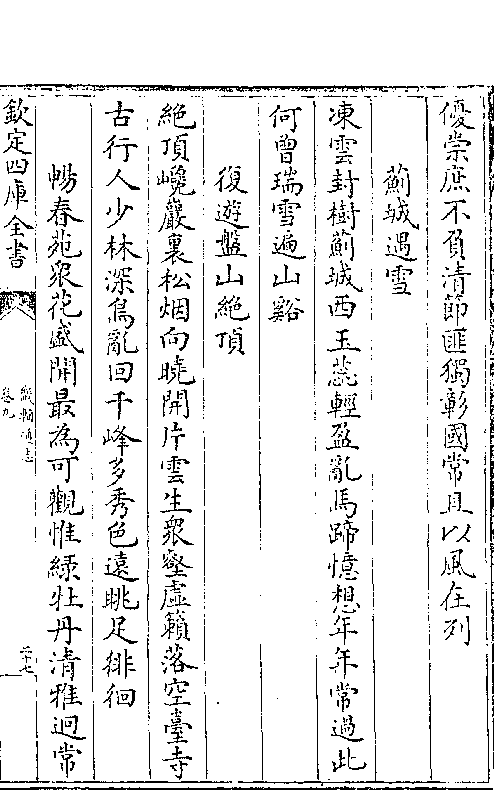 優崇庶不負清節匪獨彰國常且以風在列
薊城遇雪
凍雲封樹薊城西玉蕊輕盈亂馬蹄憶想年年常過此
何曾瑞雪遍山谿
復遊盤山絶頂
絶頂巉巖裏松烟向曉開片雲生衆壑虛籟落空臺寺
古行人少林深鳥亂回千峰多秀色遠眺足徘徊
暢春苑衆花盛開最為可觀惟綠牡丹清雅迥常
欽定四庫全書
畿輔通志
卷九
二十七